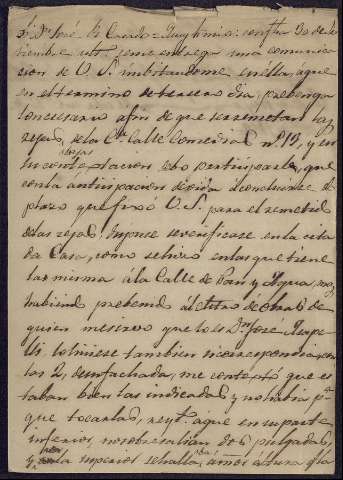 Dn José
tiembre ult. se me entrega una comunica
cion de V. S. invitandome en ella, á que
en el termino de tercero dia, prebenga
lo necesario afin de que se remetan las
rejas, de la Cª Calle Comedias nº 19, y en
su contestacion debo participarle, que
con la anticipacion devida á concluirse el
plazo que fixó V. S. para el remetido
de las rejas, dispuse se verificase en la cita
da Casa, como se hizo en las que tiene
la misma á la Calle de Pan y Agua, no
habiendo prebenido al citado de obras de
quien me sirvo que lo es Dn José
lo hiciese tambien
los 2, de su fachada, me contestó que es
taban bien las indicadas y no habia pª
que tocarlas, á que en su parte
inferior, no sobresalian dos pulgadas,
y la superior se halla á mas altura de la